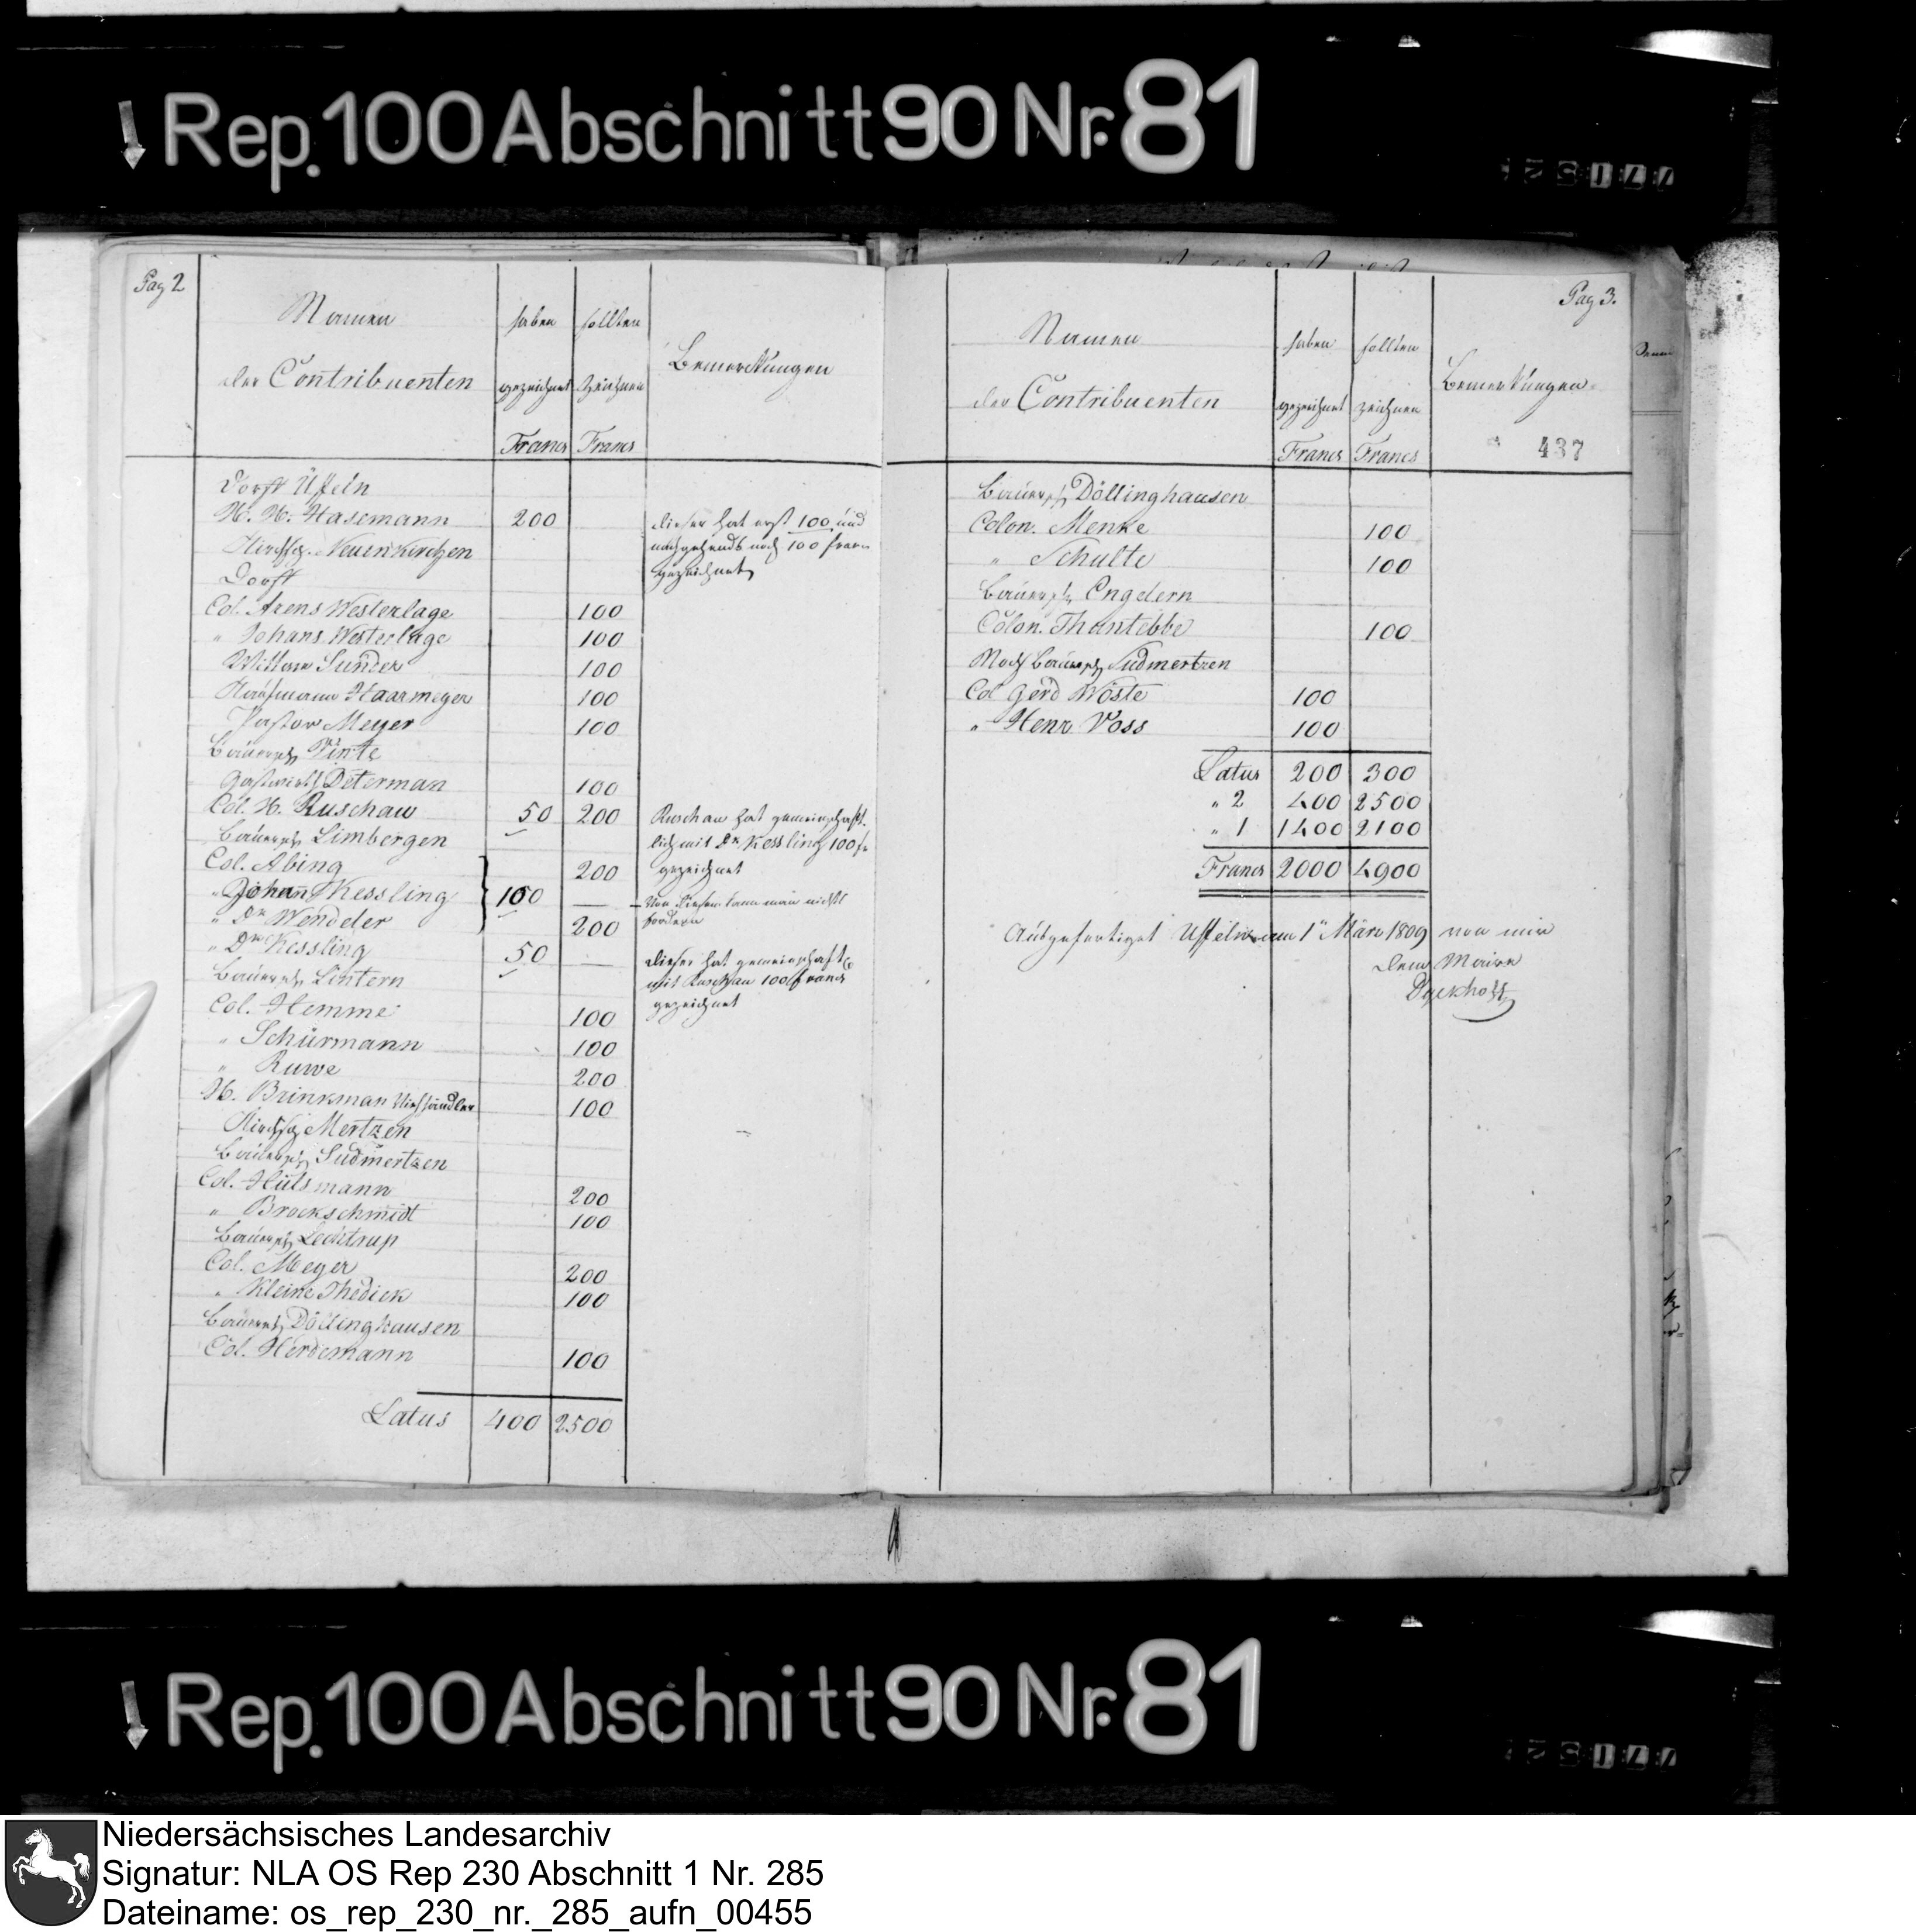 Rep. 100 Abschnitt 90 Nr. 81
Pag 2
Namen
der Contribuenten
haben
gezeichnet
Francs
sollten
zeichnen
Francs
Bemerckungen
Dorff Üffeln
H. H. Hasemann 200 dieser hat erst 100 und
nachgehends noch 100 francs
gezeichnet
Kirchsp. Neuenkirchen
Dorff
Col. Arens Westerlage 100
" Johans Westerlage 100
Wittwe Sunder 100
Kaufmann Haarmeyer 100
Pastor Meyer 100
Bauersch. Vinte
Gastwirth Determan 100
Col. H. Ruschaw 50 200 Ruschaw hat gemeinschaft-
lich mit Dr. Kessling 100 fr
gezeichnet
Bauersch. Limbergen
Col. Abing 200
" Johan Kessling 100 — von diesem kann man nichts
fordern
" Dr. Wendeler 200
" Dr. Kessling 50 — dieser hat gemeinschaftl.
mit Ruschau 100 francs
gezeichnet
Bauersch. Lintern
Col. Hemme 100
" Schürmann 100
" Ruwe 200
H. Brinkman Viehhändler 100
Kirchsp. Mertzen
Bauersch. Südmertzen
Col. Hülsmann 200
" Brockschmidt 100
Bauersch. Lechtrup
Col. Meyer 200
" Kleine Thedieck 100
Bauersch. Döllinghausen
Col. Herdemann 100
Latus 400 2500
Pag 3.
Namen
der Contribuenten
haben
gezeichnet
Francs
sollten
zeichnen
Francs
Bemerkungen
437
Bauersch. Döllinghausen
Colon. Menke 100
" Schulte 100
Bauersch. Engelern
Colon. Thantebbe 100
Noch Bauersch. Südmertzen
Col Gerd Wöste 100
" Henr Voss 100
Latus 200 300
" 2 400 2500
" 1 1400 2100
Francs 2000 4900
Ausgefertiget Uffeln am 1" März 1809 von mir
dem Maire
Dyckhoff
Rep. 100 Abschnitt 90 Nr. 81
Niedersächsisches Landesarchiv
Signatur: NLA OS Rep 230 Abschnitt 1 Nr. 285
Dateiname: os_rep_230_nr._285_aufn_00455